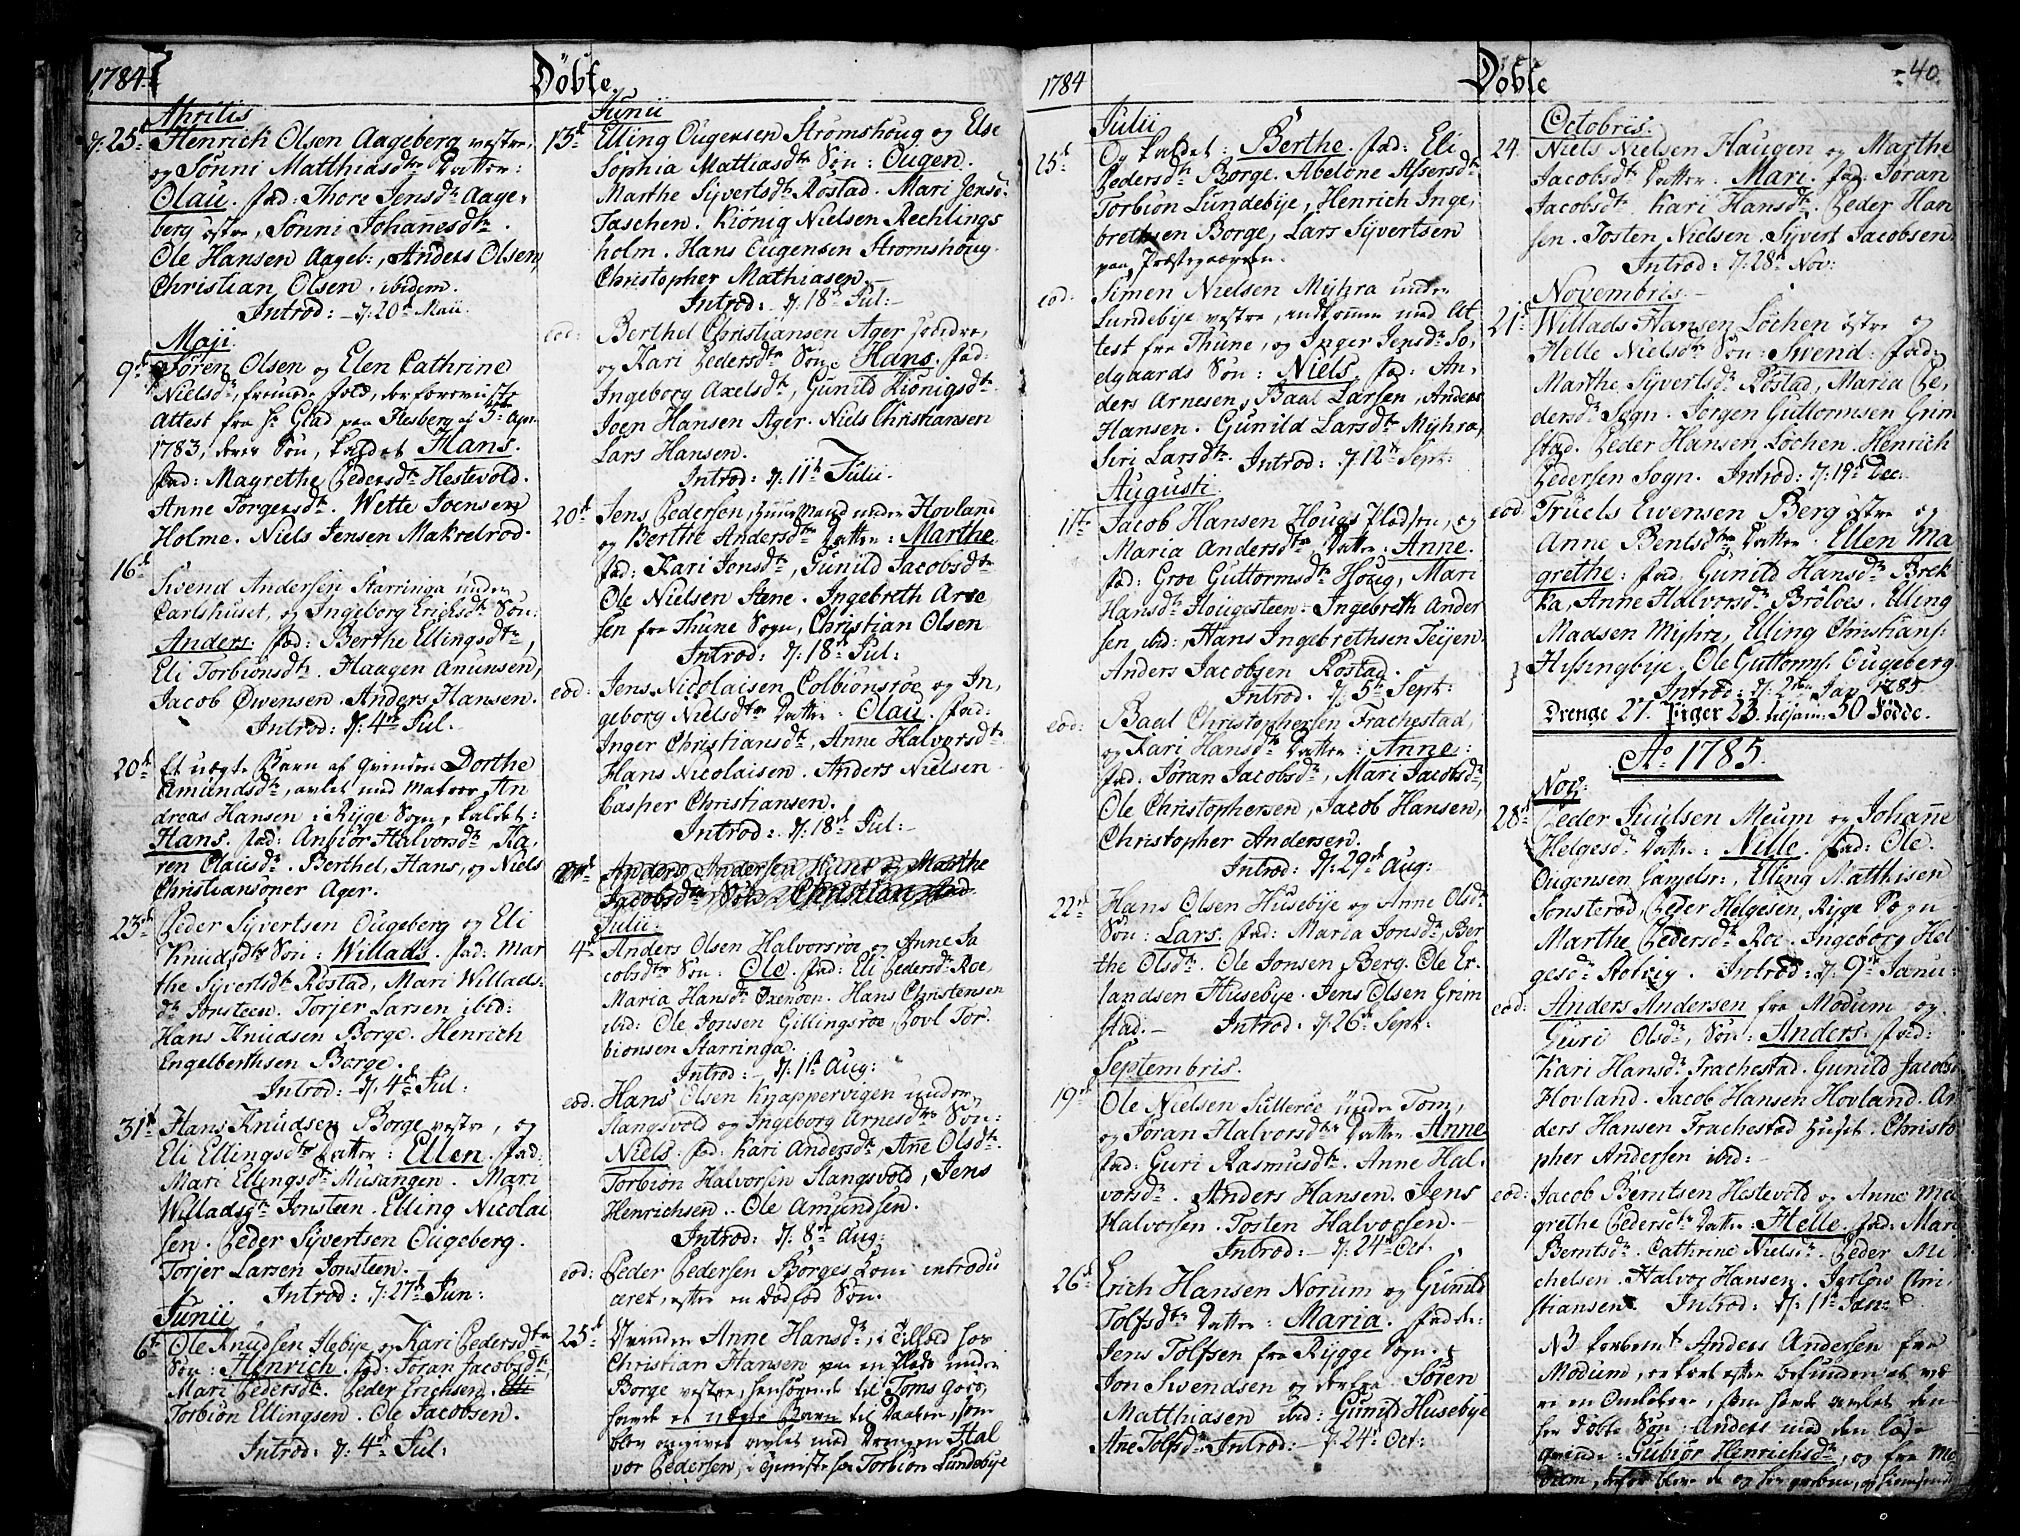 1784
Döbte
Aprilis
d: 25de Henrich Olsen Aageberg vestre,
og Sönni Matthiasdtr Datter:
Olau. fad: Thore Jensdtr Aage,
berg östre, Sönni Johanesdtr.
Ole Hansen Aageb:, Anders Olsen,
Christian Olsen, ibidem.
Introd: d: 20de Maii.
Maji.
9de Sören Olsen og Elen Cathrine
Nielsdr, fremede folk, der foreviiste
Attest fra Hr Glad paa Flesberg af 5te Apr:
1783, deres Sön, kaldet Hans.
fad: Magrethe Pedersdtr Hestevold.
Anne Torgersdtr. Wette Joensen
Holme. Niels Jensen Makrelrod.
16de
Svend Andersen Starringa under
Carlshuset, og Ingeborg Erichsdtr Sön:
Anders. fad: Berthe Ellingsdtr,
Eli Torbionsdtr. Haagen Amunsen,
Jacob Owensen. Anders Hansen.
Introd: d: 4de Jul.
20de Et uægte Barn af qvinden Dorthe
Amandsdtr, avlet med Matros An
dreas Hansen i Rygge Sogn, kaldet:
Hans. fad: Anbiör Halvorsdtr Ka,
ren Clausdr. Berthel, Hans, og Niels
Christiansöner Ager.
23de Peder Syvertsen Ougeberg og Eli
Knudsdtr Sön: Willads. fad: Mar
the Syvertsdtr Rostad, Mari Willads,
dr Jonsteen. Torjer Larsen ibid:
Hans Knudsen Borge. Henrich
Engelberthsen Borge.
Introd: d: 4de Jul:
31te Hans Knudsen Borge vestre, og
Eli Ellingsdtr Datter: Ellen. fad:
Mari Ellingsdtr Musangen. Mari
Willadsdtr Jonsteen. Elling Nicolai
sen. Peder Syvertsen Ougeberg.
Torjer Larsen Jonsteen.
Introd: d: 27de Jun:
Junii
6te Ole Knudsen Ilebye og Kari Pedersdtr
Sön: Henrich. fad: Jöran Jacobsdtr,
Mari Pedersdtr. Peder Erichsen.
Torbiön Ellingsen. Ole Jacobsen.
Introd: d: 4de Jul
Junii
13de Elling Ougensen Strömshoug og Else
Sophia Mattiasdtr Sön: Ougen.
Marthe Syvertsdtr Röstad. Mari Jensd:
Taschen. König Nielsen Rechlings
holm. Hans Ougensen Strömshoug.
Christopher Mathiasen.
Introd: d: 18de Jul:
eod: Berthel Christiansen Ager söndre,
og Kari Pedersdtr Sön: Hans. fad:
Ingeborg Axelsdtr, Gunild Kiönigsdtr.
Joen Hansen Ager. Niels Christiansen
Lars Hansen.
Introd: d: 11te Julii.
20de Jens Pedersen, Huusmand under Hovland
og Berthe Andersdtr Datter: Marthe.
fad: Kari Jonsdtr, Gunild Jacobsdtr
Ole Nielsen Stene. Ingebreth Arve
sen fra Thune Sogn, Christian Olsen
Introd: d: 18de Jul:
eod: Jens Nicolaisen Colbionsröe og In,
geborg Nielsdtr Datter: Olau. fad:
Inger Christiansdtr, Anne Halvorsdtr.
Hans Nicolaisen. Anders Nielsen
Casper Christiansen.
Introd: d: 18de Jul:
Anders Andersen Huser og Marthe
Jacobsdtr Sön: Christian fad:
Julii:
4de Anders Olsen Halvorsröe og Anne Ja
cobsdtr Sön: Ole. fad: Eli Pedersdtr Roe,
Maria Hansdtr Oxenöen. Hans Christensen
ibid: Ole Jonsen Gillingsröe, Povl Tor,
bionsen Starringa.
Introd: d: 1te Aug:
eod: Hans Olsen Knappervigen under
Stangsvold og Ingeborg Arnesdtr Sön:
Niels. fad: Kari Andersdtr, Ane Olsdtr.
Torbiön Halvorsen Stangsvold, Jens
Henrichsen. Ole Amundsen.
Introd: d: 8de Aug:
eod: Peder Pedersen Borges Kone introdu
ceret, efter en dödfod Sön.
25de Qvinden Anne Hansdtr, i Tilhold hos
Christian Hansen paa en Plads under
Borge vestre, henhörende til Toms Gods,
havde et uægte Barn til Daaben, som
blev angivet avlet med Drengen Hal
vor Pedersen, i Tieneste hos Torbiön Lundebye
1784
Döbte
40.
Julii
25de Og kaldet: Berthe. fad: Eli
Pedersdtr Borge. Abelone Assersdtr
Torbiön Lundebye, Henrich Inge,
brethsen Borge, Lars Syvertsen
paa Præstegaarden.
eod: Simen Nielsen Myhra under
Lundebye vestre, antkommen med At
test fra Thune, og Inger Jensdtr So,
elgaards Sön: Niels. fad: An,
ders Arnesen, Baal Larsen, Anders
Hansen. Gunild Larsdtr Myhra,
Siri Larsdtr. Introd: d: 12te Sept:
Augusti.
1te Jacob Hansen Hougs Pladsen, og
Maria Andersdtr Datter: Anne.
fad: Groe Guttormsdtr Houg, Mari
Hansdtr Hougesteen. Ingebreth Ander
sen ibid:, Hans Ingebrethsen Teijen
Anders Jacobsen Rostad.
Introd: d: 5te Sept:
eod: Baal Christophersen Frachestad,
og Kari Hansdtr Datter: Anne:
fad: Jöran Jacobsdtr, Mari Jacobsdr,
Ole Christophersen, Jacob Hansen,
Christopher Andersen.
Introd: d: 29de Aug:
22de Hans Olsen Husebye og Anne Olsdtr
Sön: Lars. fad: Maria Jonsdtr, Ber
the Olsdtr. Ole Jonsen Berg. Ole Er,
landsen Husebye. Jens Olsen Grim
stad. Introd: d: 26de Sept:
Septembris.
19de Ole Nielsen Sulleröe under Tom,
og Jöran Halvorsdtr Datter. Anne
fad: Guri Rasmusdtr. Anne Hal,
vorsdr. Anders Hansen. Jens
Halvorsen. Tosten Halvorsen.
Introd: d: 24de Oct.
26de Erich Hansen Norum og Gunild
Tolfsdtr Datter: Maria. fadde:
Jens Tolfsen fra Rygge Sogn.
Jon Svendsen og derfra. Sören
Matthiasen ibid: Gunild Husebye
Ane Tolfsdr. Introd: d: 24de Oct:
Octobris.
24. Niels Nielsen Haugen og Marthe
Jacobsdtr Datter: Mari. fad: Jöran
Jacobsdtr. Kari Hansdtr. Peder Han
sen. Tosten Nielsen. Syvert Jacobsen.
Introd: d: 28de Nov:
Novembris.
21de Willads Hansen Löchen östre og
Helle Nielsdtr Sön: Svend. fad:
Marthe Syvertsdtr Rostad, Maria Pe,
dersdtr Sogn. Jörgen Guttormsen Grim
stad. Peder Hansen Löchen. Henrich
Pedersen Sogn. Introd: d: 19de Dec:
eod: Truels Ewensen Berg östre og
Anne Bentsdtr Datter. Ellen Ma
grethe: fad: Gunild Hansdtr Brek
ka, Anne Halvorsdr Bröloes. Elling
Madsen Myhre, Elling Christians:
Hissingbye. Ole Guttorms: Ougeberg
Introd: d: 2den Jan 1785.
Drenge 27. Piger 23. tilsam: 50 Födde.
Ao 1785.
Nov:
28de Peder Juulsen Meum og Johane
Helgesdtr Datter: Nille. fad: Ole.
Ougensen Gamelsr:, Elling Matthisen
Sonsteröd, Peder Helgesen, Rygge Sogn.
Marthe Pedersdtr Roe. Ingeborg Hel
gesdr Rolvig. Introd: d: 9de Janu:
eod: Anders Andersen fra Modum og
Guri Olsdr, Sön: Anders. fad:
Kari Hansdr Frachestad. Gunild Jacobsd
Hovland. Jacob Hansen Hovland. An
ders Hansen Frachestad Huset. Christo
pher Andersen ibid:
eod: Jacob Berntsen Hestevold og Anne Ma
grethe Pedersdtr Datter: Helle. fad: Mari
Berntsdr. Cathrine Nielsdr. Peder Mi
chelsen. Halvor Hansen. Iverlöw Chri
stiansen. Introd: d: 11te Jan:
NB forbemte Anders Andersen fra
Modum, er kort efter befunden at væ
re en Omlöber, som havde avlet den
her döbte Sön: Anders med den löse
qvinde: Gubiör Henrichsdtr, og fra Mo
dum,